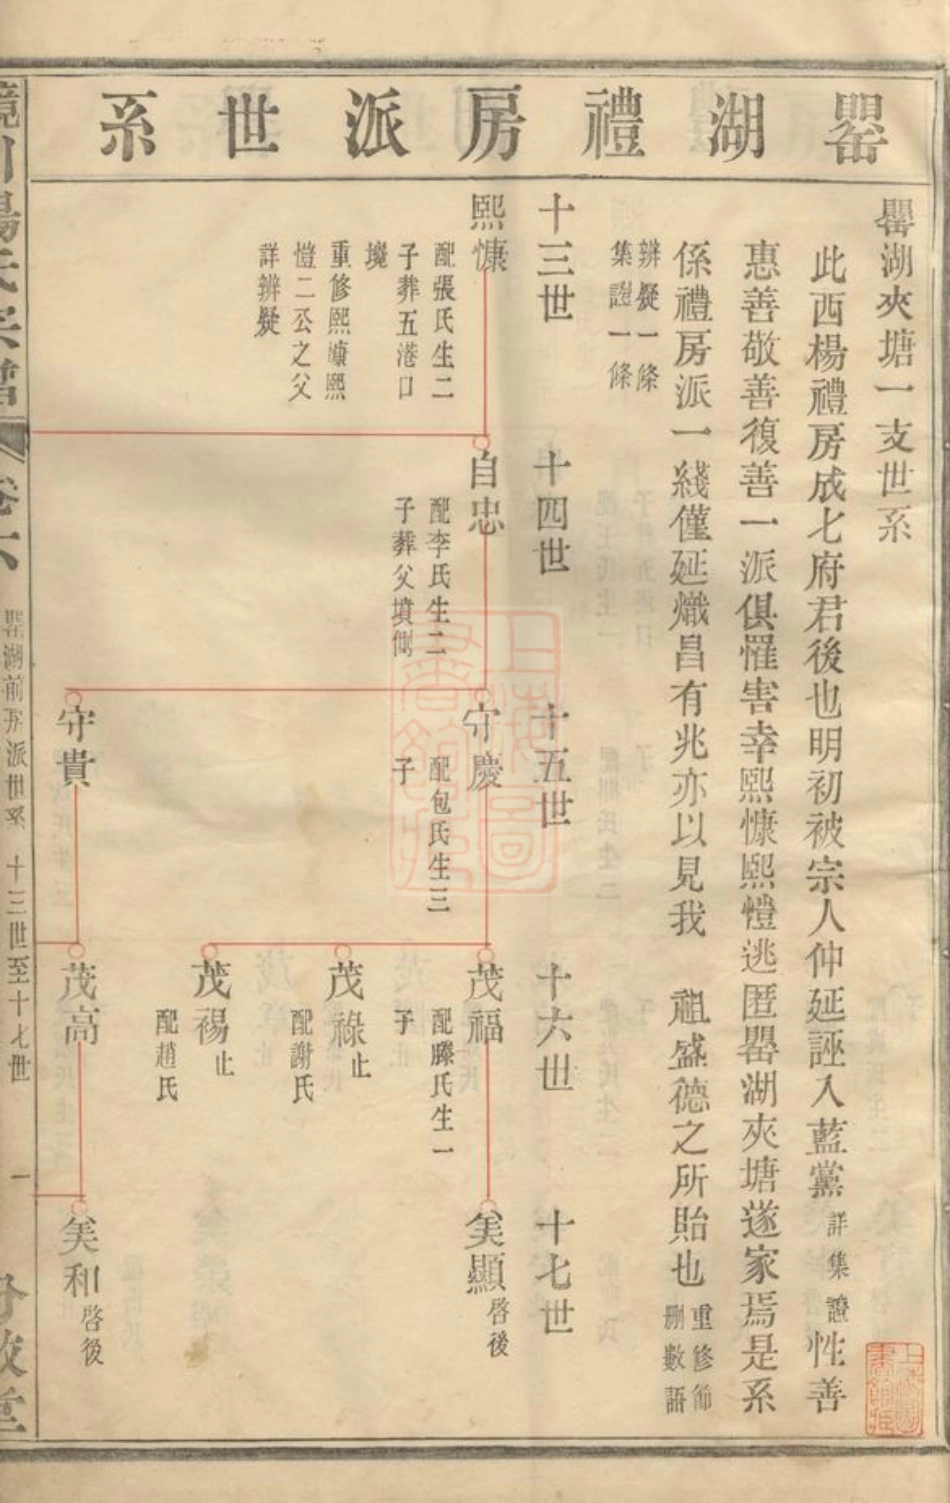 罌湖禮房派世系
罌湖夾塘一支世系
此西楊禮房成七府君後也明初被宗人仲延誣入藍黨詳集證性善
惠善敬善復善一派俱罹害幸熙慷熙愷逃匿罌湖夾塘遂家焉是系
係禮房派一綫僅延熾昌有兆亦以見我 祖盛德之所貽也重修節
刪數語
辨疑一條
集證一條
十三世
熙慷
配張氏生二
子葬五港口
境
重修熙慷熙
愷二公之父
詳辨疑
十四世
自忠
配李氏生二
子葬父墳側
十五世
守慶
配包氏生三
子
守貴
十六世
茂福
配滕氏生一
子
茂祿止
配謝氏
茂禓止
配趙氏
茂高
十七世
美顯啓後
美和啓後
鏡川楊氏宗譜
卷六
罌湖前房派世系 十三世至十七世
一
上海圖書館藏